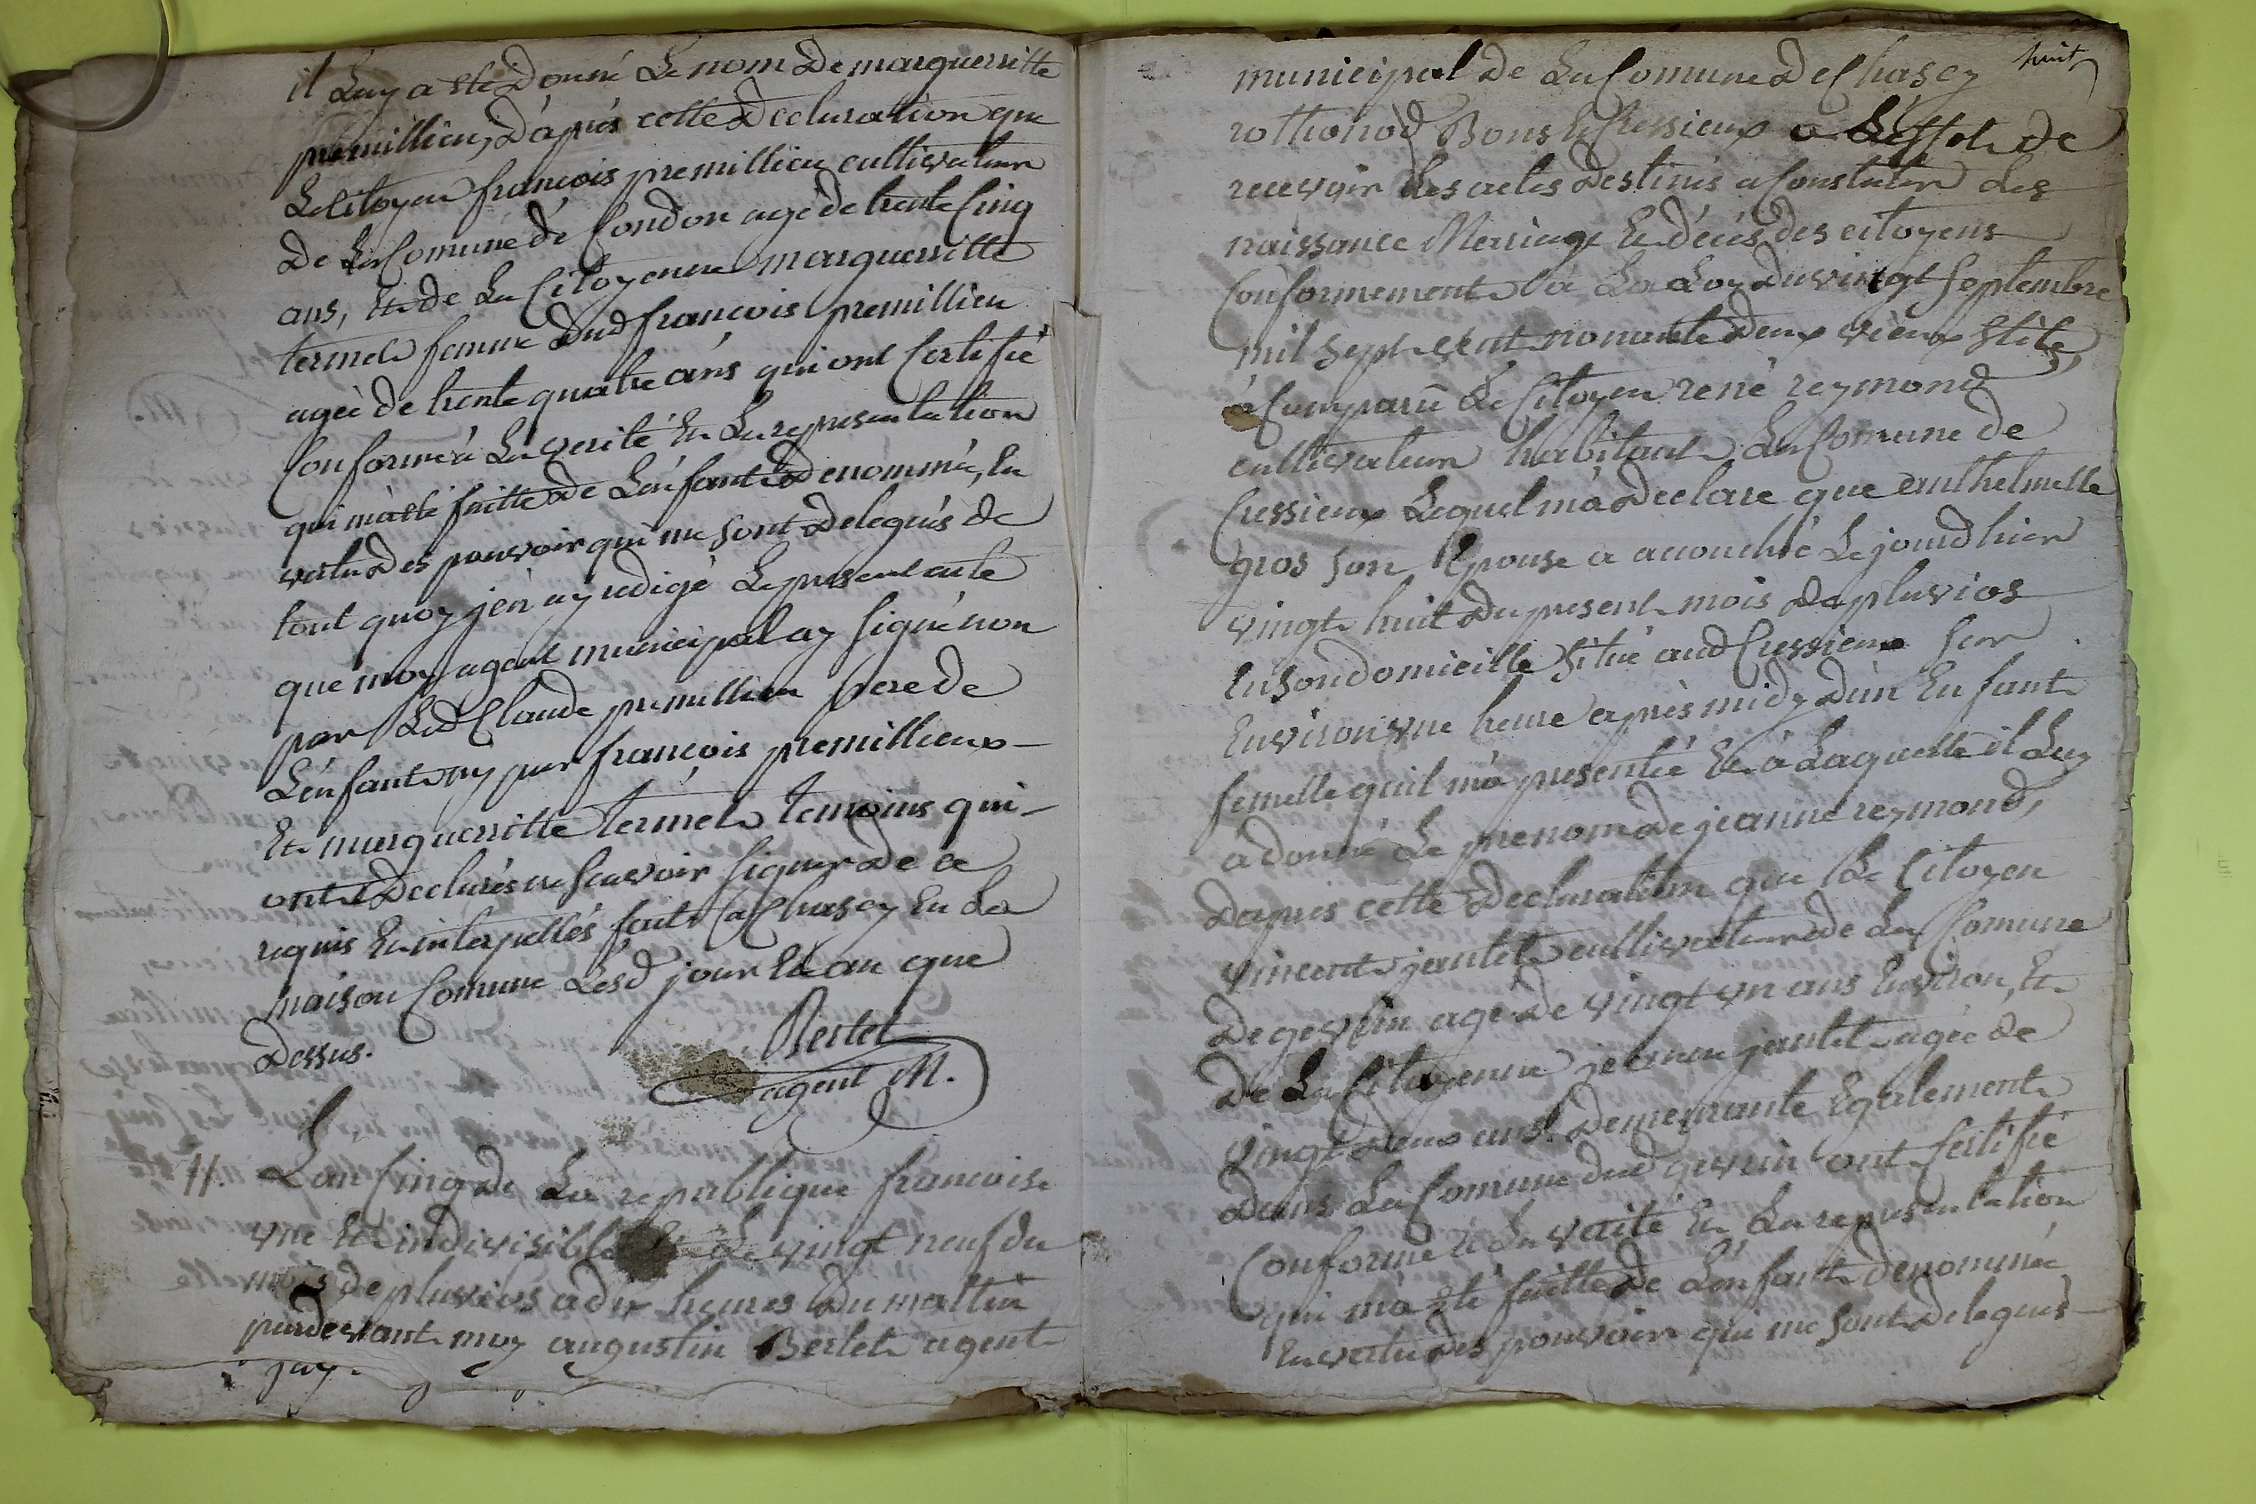 il Luy a êté Donné Le nom De marguerritte
premillieu, D'après cette Declaration que
Le Citoyen françois premillieu cultivateur
De La Comune de Condon agé de trente Cinq
ans, Et de La Citoyenne marguerritte
termet femme Dud françois premillieu
agée de trente quatre ans qui ont Certifié
Conforme à La verité Et La representation
qui m'a été faitte de L'enfant Denommée, En
vertu Des pouvoir qui me sont Delegués de
tout quoy j'en ay redigé Le present acte
que moy agent municipal ay signé non
par Led Claude premillieu pere de
L'enfant ny par françois premillieux
Et marguerritte termet temoins qui
ont Declarés ne sçavoir signer De ce
requis Et interpellés fait à Chasey En La
maison Comune Lesd jour Et an que
Dessus.
Berlet
agent M.
11. L'an Cinq de La republique francoise
vne Et indivisible Et Le vingt neuf du
mois de pluvios a dix heures Du mattin
pardevant moy augustin Berlet agent
huit
municipal de La Comune De Chasey
rothonod Bons Et Cressieux a L'effet de
recevoir Les actes Destinés a Constater des
naissance Mariage Et décés des citoyens
Conformement à La Loy Du vingt septembre
mil sept cent nonante Deux vieux stile,
à Comparu Le Citoyen rené reymond
cultivateur habitant La Comune de
Cressieux Lequel m'a Declare que anthelmette
gros son Epouse a accouché Le jourd hier
vingt huit Du present mois De pluvios
En son domicille situé aud Cressieux sur
Environ vne heure après midy D'un Enfant
femelle qu'il m'a presentée Et à Laquelle il Luy
à donné Le prenom De jeanne reymond,
Dapres cette Declaration que Le Citoyen
vincent jantet cultivateur de La Comune
De gevrin agé De vingt vn ans Environ, Et
De La Citoyenne jeanne jantet agée de
vingt Deux ans Demeurante Egalement
Dans La Comune dud gevrin ont Certifié
Conforme à La verité Et La representation
qui m'a été faitte De L'enfant Denommée
En vertu Des pouvoir qui me sont Delegués